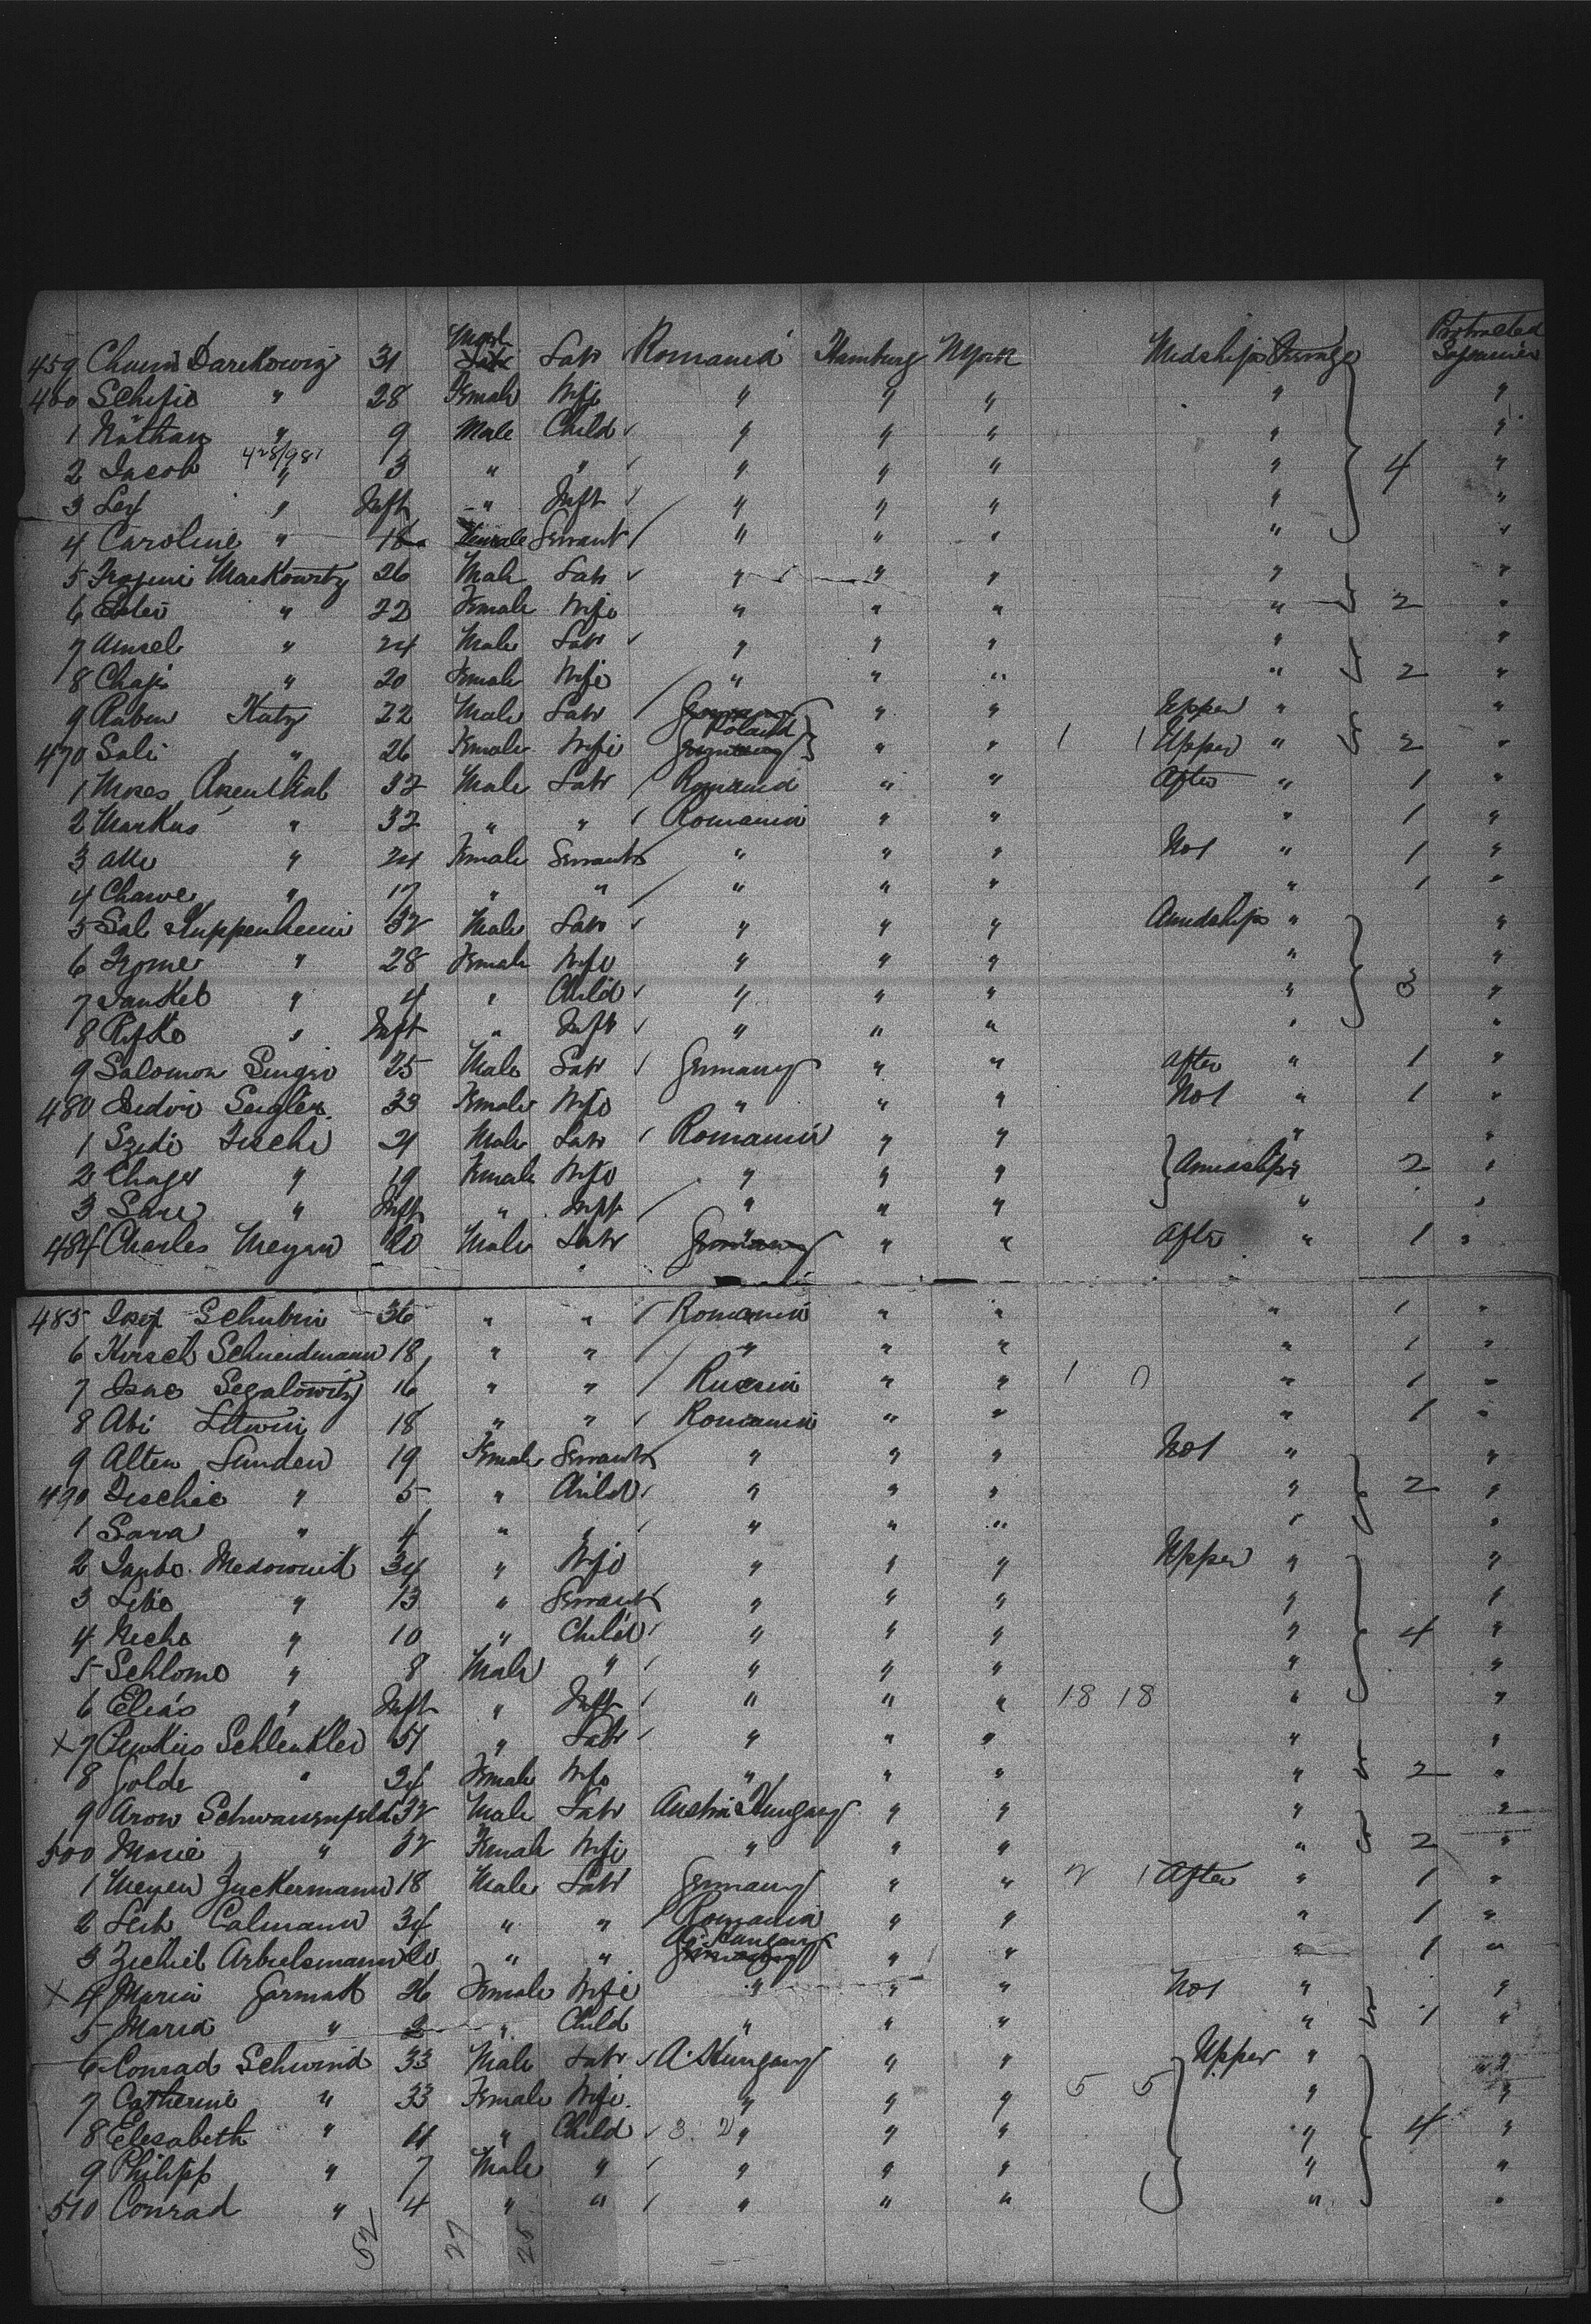 459 Chaim Darekowiz 31 Male Labr Romania Hamburg NYork Midships Steerage Protracted Sojourner
460 Schifie " 28 Female Wife " " " " "
1 Nathan " 9 Male Child " " " " "
2 Jacob 428/981 " 3 " " " " " " 4 "
3 Ley " Inft " Inft " " " " "
4 Caroline " 18 Female Servant " " " " "
5 Markowitz 26 Male Labr " " " " "
6 Ester " 22 Female Wife " " " " 2 "
7 Amsel " 24 Male Labr " " " " "
8 Chaje " 20 Female Wife " " " " 2 "
9 Ruben Katz 22 Male Labr Germany " " Upper " "
470 Sali " 26 Female Wife Poland Germany " " 1 1 Upper " 2 "
1 Moses Rosenthal 32 Male Labr Romania " " After " 1 "
2 Markus " 32 " " Romania " " " 1 "
3 " 24 Female Servant " " " Not " 1 "
4 Chawe " 17 " " " " " " 1 "
5 Sal Kuppenheim 32 Male Labr " " " Amidships " "
6 " 28 Female Wife " " " " "
7 Jankel " 4 " Child " " " " 3 "
8 Rifke " Inft " Inft " " " " "
9 Salomon Singer 25 Male Labr Germany " " After " 1 "
480 Isidor Seigler 33 Female Wife " " " Not " 1 "
1 Fische 21 Male Labr Romania " " " "
2 Chaje " 19 Female Wife " " " Amidships " 2 "
3 Sare " Inft " Inft " " " " "
484 Charles Meyer 20 Male Labr Germany " " After " 1 "
485 Josef Schubin 36 " " Romania " " " 1 "
6 Hirsch Schneidmann 18 " " " " " " 1 "
7 Isac Segalowitz 16 " " Russia " " 1 0 " 1 "
8 Abi Litwin 18 " " Romania " " " 1 "
9 Alten Sunden 19 Female Servant " " " Not " "
490 Zeschie " 5 " Child " " " " 2 "
1 Sara " 4 " " " " " " "
2 Medownik 34 " Wife " " " Upper " "
3 Libe " 13 " Servant " " " " "
4 Neche " 10 " Child " " " " 4 "
5 Schlome " 8 Male " " " " " "
6 Elias " Inft " Inft " " " 18 18 " "
X 7 Pinkus Schlenkler 51 " Labr " " " " "
8 Golde " 34 Female Wife " " " " 2 "
9 Aron Schwarzenfeld 32 Male Labr Austria Hungary " " " "
500 Marie " 32 Female Wife " " " " 2 "
1 Meyer Zuckermann 18 Male Labr Germany " " 2 1 After " 1 "
2 Leib Calmann 34 " " Romania " " " 1 "
3 Zechiel Arbeilsmann 20 " " A. Hungary Germany " " " 1 "
X 4 Maria Garmak 26 Female Wife " " " Not " "
5 Maria " 2 " Child " " " " 1 "
6 Conrad Schwind 33 Male Labr A. Hungary " " Upper " "
7 Catherine " 33 Female Wife " " " 5 5 " "
8 Elesabeth " 11 " Child 3 2 " " " " 4 "
9 Philipp " 7 Male " " " " " "
510 Conrad " 4 " " " " " " "
52 27 25